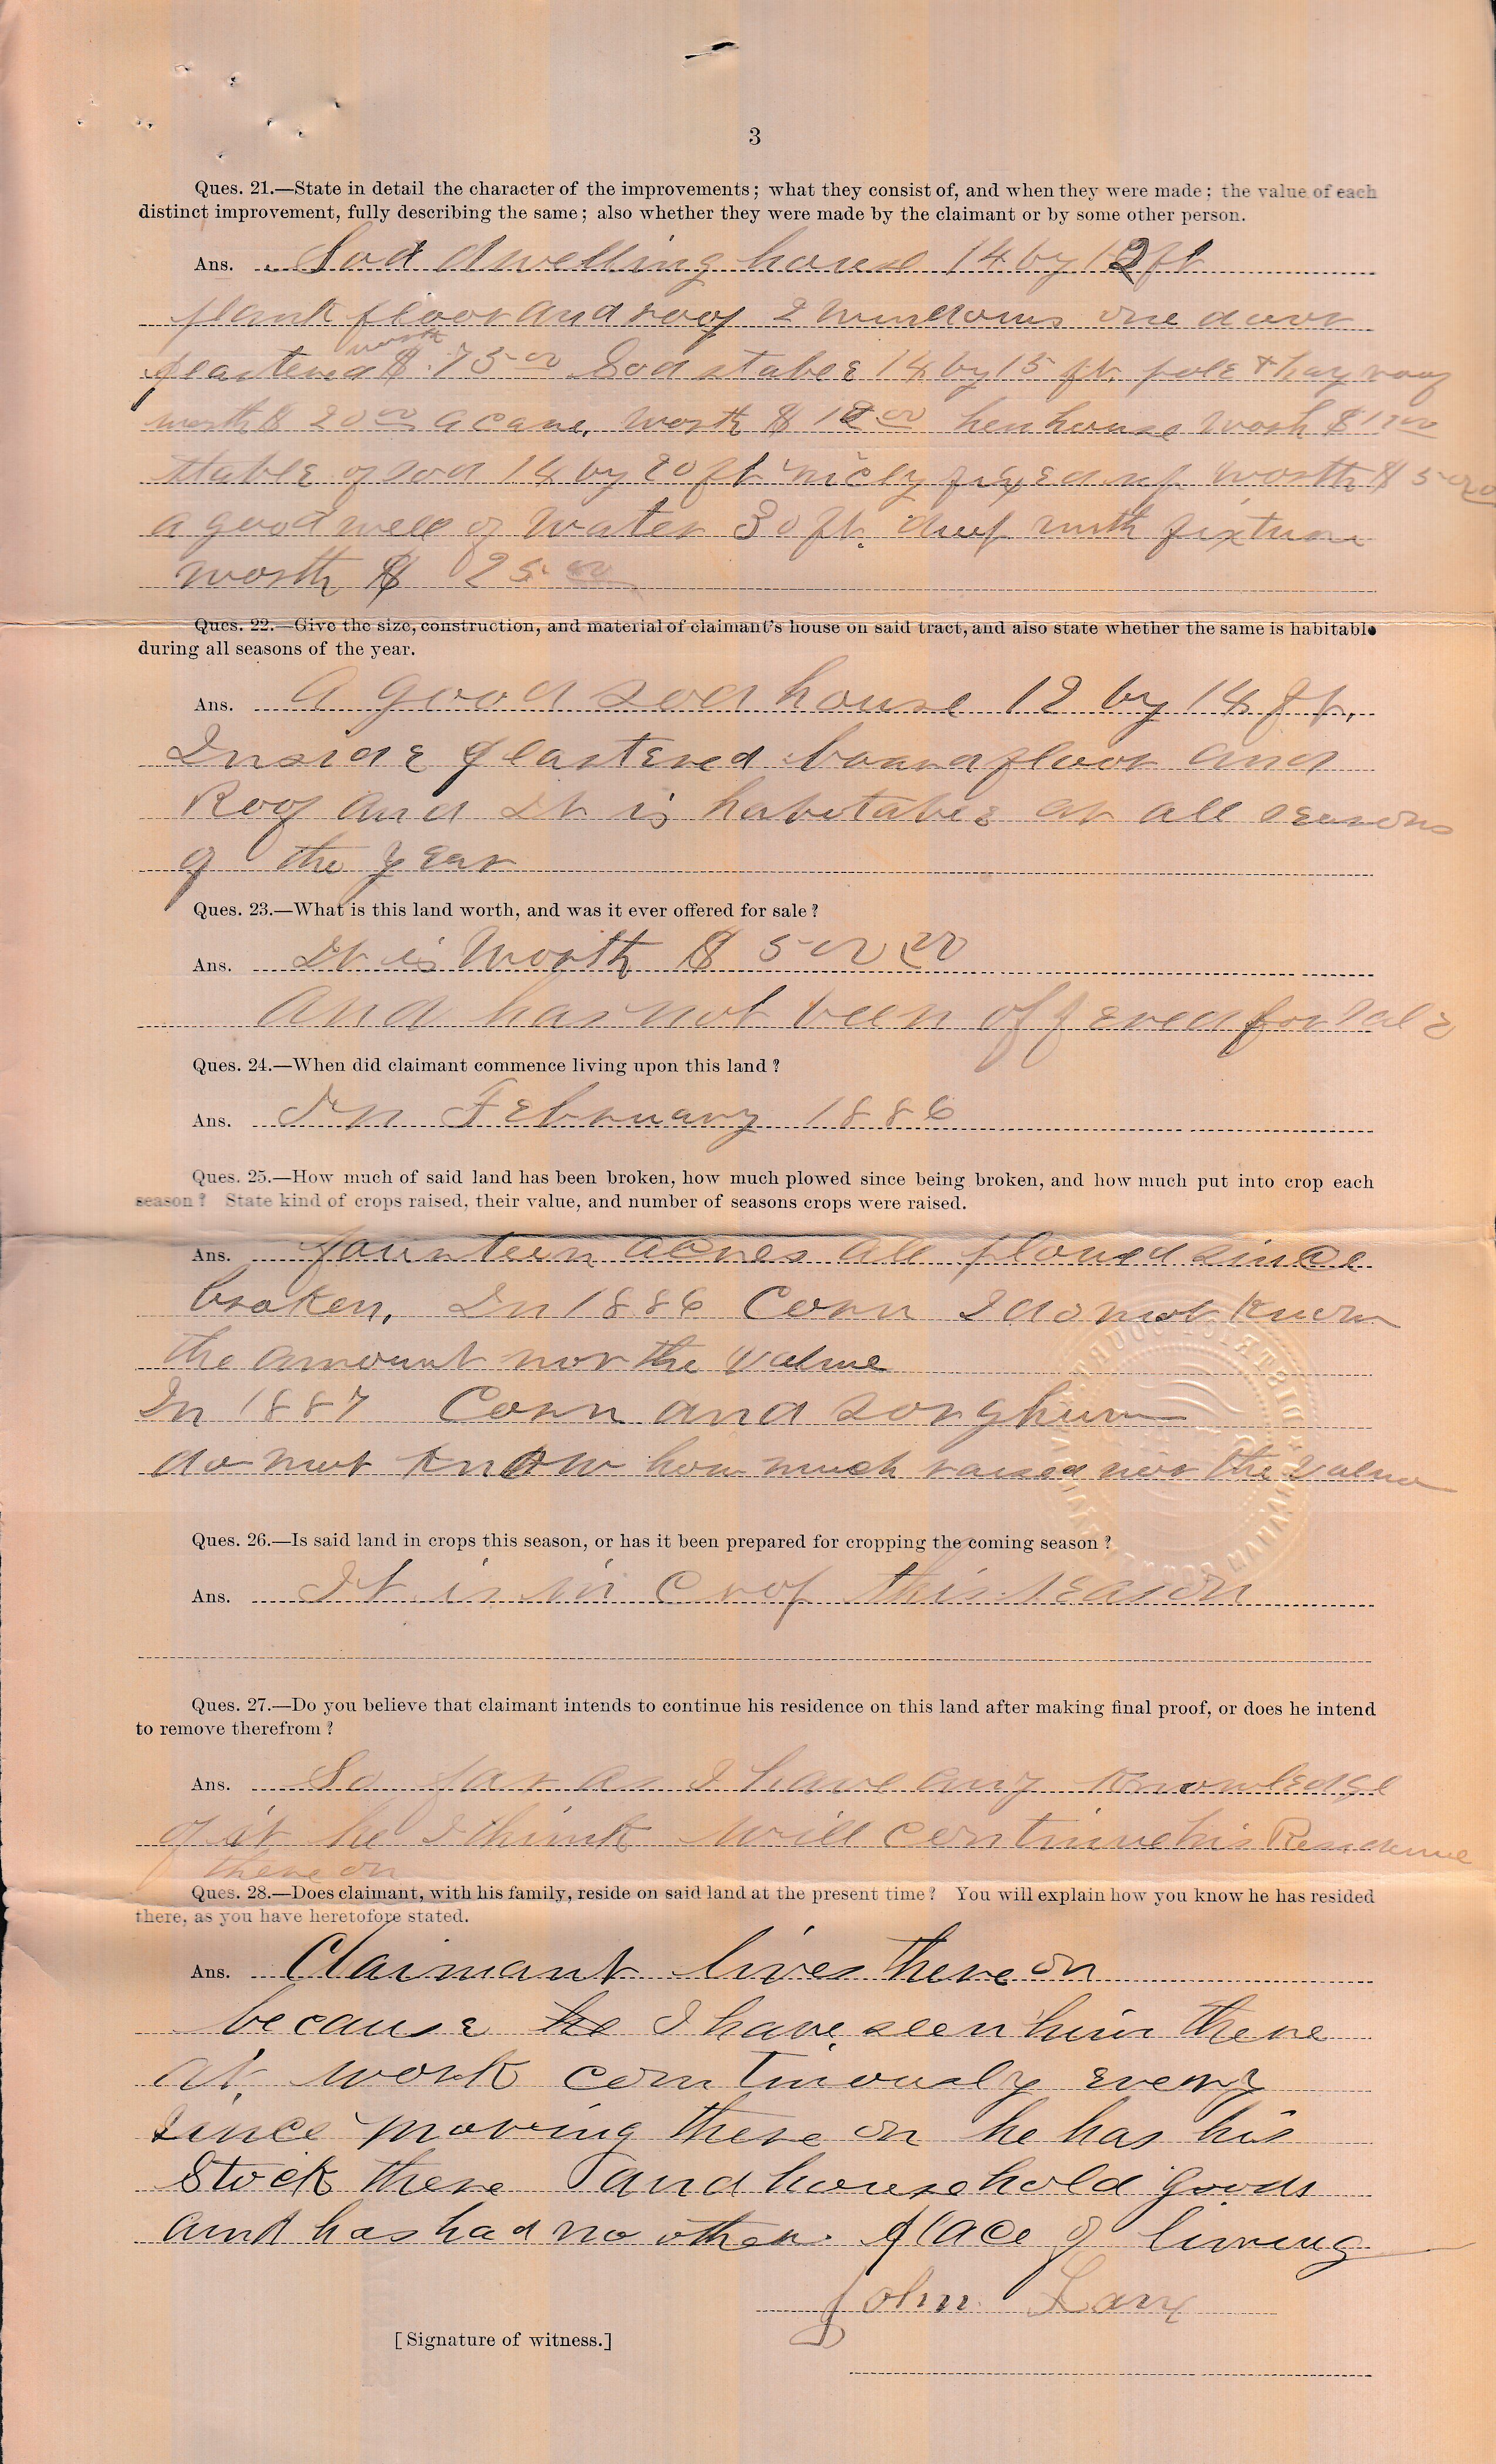 3
Ques. 21.—State in detail the character of the improvements; what they consist of, and when they were made; the value of each
distinct improvement, fully describing the same; also whether they were made by the claimant or by some other person.
Ans. Sod dwelling house 14 by 12 ft
plank floor and roof 2 windows one door
worth
plastered $ 75 00 Sod stable 14 by 15 ft. pole & hay roof
worth $ 20 00 a cave, worth $ 00 hen house worth $
stable of sod 14 by 20 ft nicely fixed up worth $ 50 00
a good well of water 30 ft. deep with fixture
worth $ 25 00
Ques. 22.—Give the size, construction, and material of claimant's house on said tract, and also state whether the same is habitable
during all seasons of the year.
Ans. A good sod house 12 by 14 ft.
Inside plastered board floor and
Roof and It is habitable at all seasons
of the year
Ques. 23.—What is this land worth, and was it ever offered for sale?
Ans. It is Worth $ 500 00
and has not been offered for sale
Ques. 24.—When did claimant commence living upon this land?
Ans. In February 1886
Ques. 25.—How much of said land has been broken, how much plowed since being broken, and how much put into crop each
season? State kind of crops raised, their value, and number of seasons crops were raised.
Ans. fourteen acres all plowed since
broken. In 1886 Corn I do not know
the amount nor the value
In 1887 Corn and sorghum
do not know how much raised nor the value
Ques. 26.—Is said land in crops this season, or has it been prepared for cropping the coming season?
Ans. It is in Crop this season
Ques. 27.—Do you believe that claimant intends to continue his residence on this land after making final proof, or does he intend
to remove therefrom?
Ans. So far as I have any knowledge
of it he I think will continue his Residence
there on
Ques. 28.—Does claimant, with his family, reside on said land at the present time? You will explain how you know he has resided
there, as you have heretofore stated.
Ans. Claimant lives there on
because he I have seen him there
at work continously every
since moving there on he has his
Stock there and household goods
and has had no other place of living
John
[Signature of witness.]